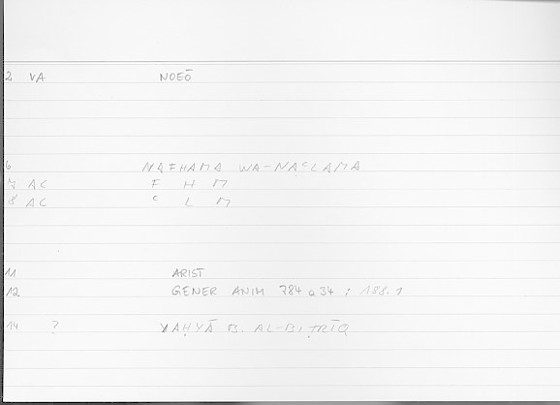 2 VA NOEŌ
6 NAFHAMA WA-NAʿLAMA
7 AC F H M
8 AC ʿ L M
11 ARIST
12 GENER ANIM 784 a 34 ; 188.1
14 ? YAḤYĀ B. AL-BIṬRĪQ